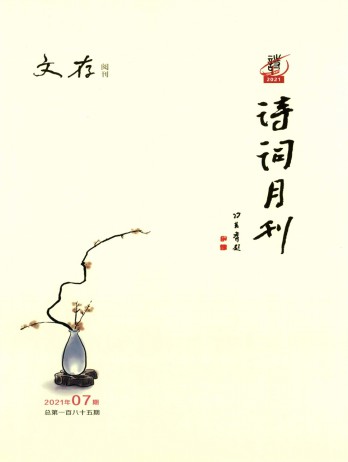 文存 阅刊
2021
诗词月刊
2021年07期
总第一百八十五期